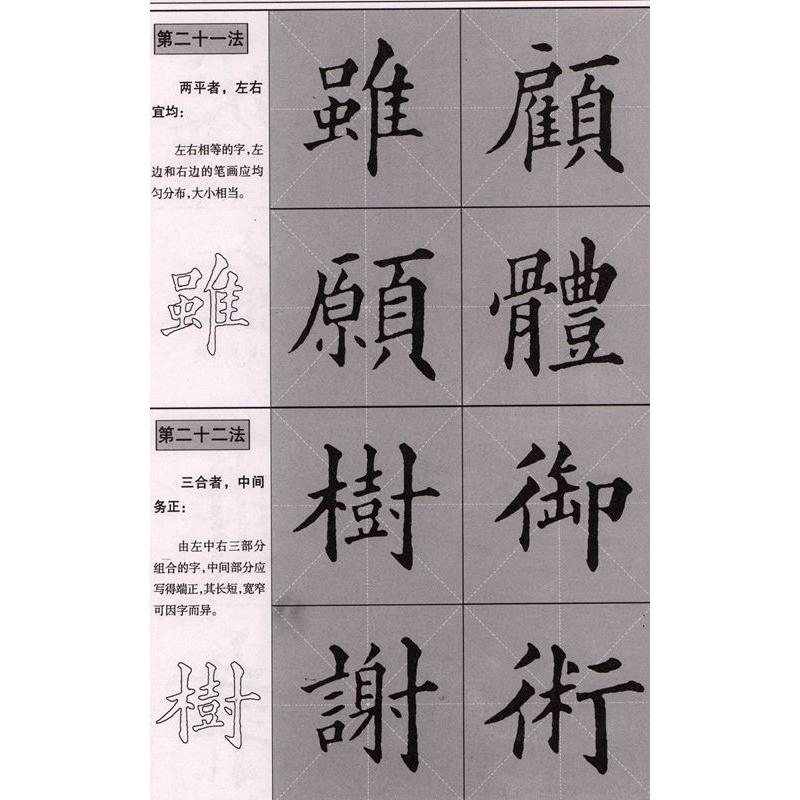 第二十一法
两平者，左右
宜均：
左右相等的字，左
边和右边的笔画应均
匀分布，大小相当。
雖
雖 顧
願 體
第二十二法
三合者，中间
务正：
由左中右三部分
组合的字，中间部分应
写得端正，其长短，宽窄
可因字而异。
樹
樹 御
謝 術